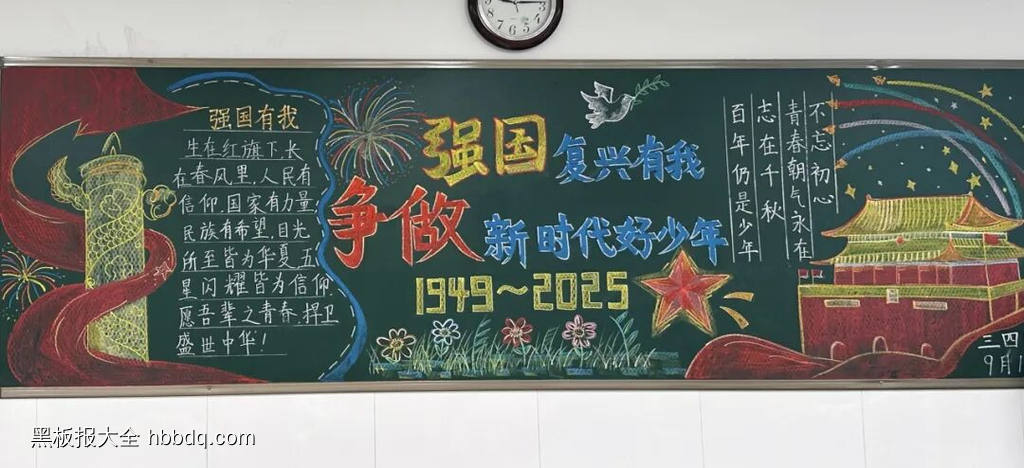 强国有我
生在红旗下,长
在春风里,人民有
信仰,国家有力量,
民族有希望,目光
所至皆为华夏,五
星闪耀皆为信仰.
愿吾辈之青春,捍卫
盛世中华!
强国复兴有我
争做新时代好少年
1949~2025
不忘初心
青春朝气永在
志在千秋
百年仍是少年
三四
9月1
黑板报大全 hbbdq.com